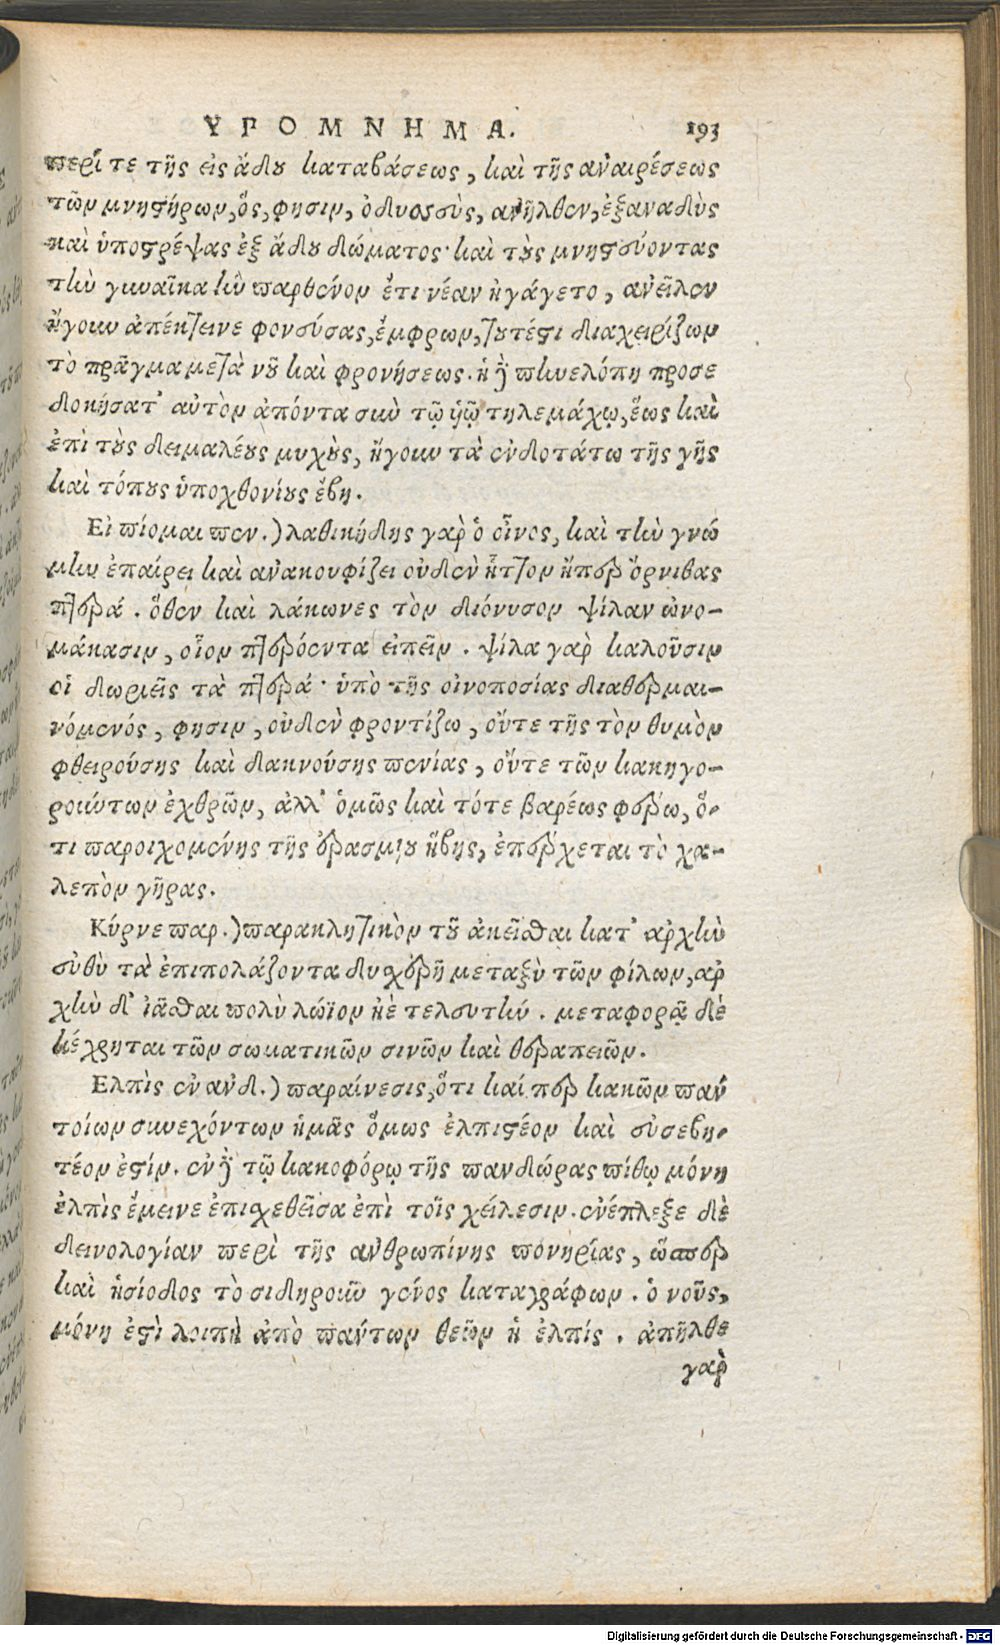 ΥΠΟΜΝΗΜΑ. 193
περί τε τῆς εἰς ᾅδου καταβάσεως, καὶ τῆς ἀναιρέσεως
τῶν μνηστήρων, ὅς, φησιν, ὀδυσσεὺς, ἀνῆλθεν, ἐξαναδὺς
καὶ ὑποστρέψας ἐξ ᾅδου δώματος· καὶ τοὺς μνηστεύοντας
τὴν γυναῖκα ἣν παρθένον ἔτι νέαν ἠγάγετο, ἀνεῖλεν
ἤγουν ἀπέκτεινε φονεύσας, ἔμφρων, τουτέστι διαχειρίζων
τὸ πρᾶγμα μετὰ νοῦ καὶ φρονήσεως. ἡ γὰρ πηνελόπη προσε
δοκήσατ᾽ αὐτὸν ἀπόντα σὺν τῷ ὑῷ τηλεμάχῳ, ἕως καὶ
ἐπὶ τοὺς δειμαλέους μυχοὺς, ἤγουν τὰ ἐνδοτάτω τῆς γῆς
καὶ τόπους ὑποχθονίους ἔβη.
Εἰ πίομαι πεν.) λαθικήδης γὰρ ὁ οἶνος, καὶ τὴν γνώ
μην ἐπαίρει καὶ ἀνακουφίζει οὐδὲν ἧττον ἤπερ ὄρνιθας
πτερά. ὅθεν καὶ λάκωνες τὸν διόνυσον ψίλαν ὠνο-
μάκασιν, οἷον πτερόεντα εἰπεῖν. ψίλα γὰρ καλοῦσιν
οἱ δωριεῖς τὰ πτερά· ὑπὸ τῆς οἰνοποσίας διαθερμαι-
νόμενός, φησιν, οὐδὲν φροντίζω, οὔτε τῆς τὸν θυμὸν
φθειρούσης καὶ δακνούσης πενίας, οὔτε τῶν κακηγο-
ρούντων ἐχθρῶν, ἀλλ᾽ ὁμῶς καὶ τότε βαρέως φέρω, ὅ-
τι παροιχομένης τῆς ἐρασμίου ἥβης, ἐπέρχεται τὸ χα-
λεπὸν γῆρας.
Κύρνε παρ.) παρακλητικὸν τοῦ ἀκεῖσθαι κατ᾽ ἀρχὴν
εὐθὺ τὰ ἐπιπολάζοντα δυσχερῆ μεταξὺ τῶν φίλων, ἀρ
χὴν δ᾽ ἰᾶσθαι πολὺ λώϊον ἠὲ τελευτήν. μεταφορᾷ δὲ
κέχρηται τῶν σωματικῶν σινῶν καὶ θεραπειῶν.
Ελπὶς ἐν ἀνδ.) παραίνεσις, ὅτι καί περ κακῶν παν
τοίων συνεχόντων ἡμᾶς ὅμως ἐλπιστέον καὶ εὐσεβη-
τέον ἐστίν. ἐν γὰρ τῷ κακοφόρῳ τῆς πανδώρας πίθῳ μόνη
ἐλπὶς ἔμεινε ἐπισχεθεῖσα ἐπὶ τοῖς χείλεσιν. ἐνέπλεξε δὲ
δεινολογίαν περὶ τῆς ἀνθρωπίνης πονηρίας, ὥσπερ
καὶ ἡσίοδος τὸ σιδηροῦν γένος καταγράφων. ὁ νοῦς,
μόνη ἐστὶ λοιπὴ ἀπὸ πάντων θεῶν ἡ ἐλπίς. ἀπῆλθε
γὰρ
Digitalisierung gefördert durch die Deutsche Forschungsgemeinschaft - DFG